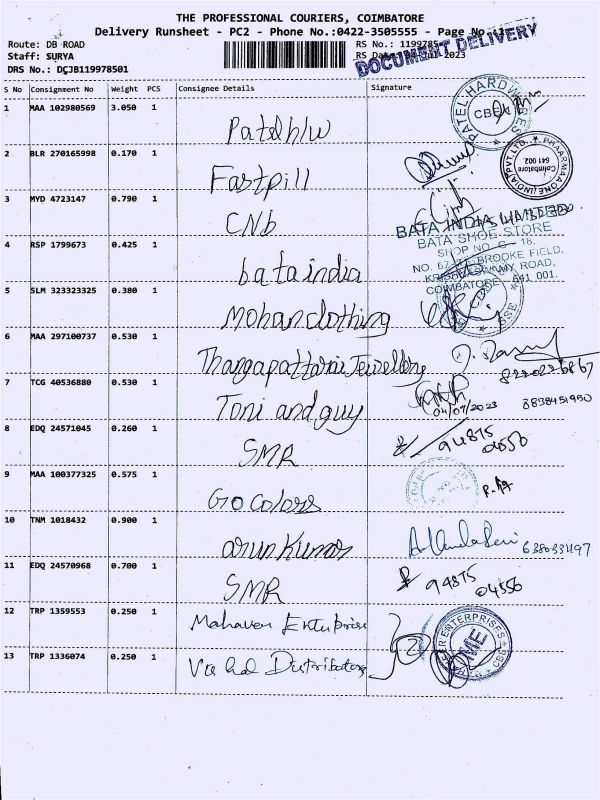 THE PROFESSIONAL COURIERS, COIMBATORE
Delivery Runsheet - PC2 - Phone No.:0422-3505555 - Page No.:1
Route: DB ROAD
RS No.: 1199785
Staff: SURYA
RS Date: 04-Jul-2023
DOCUMENT DELIVERY
DRS No.: DCJB119978501
S No Consignment No Weight PCS Consignee Details Signature
1 MAA 102980569 3.050 1 Patel h/w
PATEL HARDWARES
CBE
2 BLR 270165998 0.170 1 Fastpill
Coimbatore
641 002
3 MYD 4723147 0.790 1 CNb
BATA INDIA LIMITED
BATA SHOE STORE
SHOP NO. G - 18,
BROOKE FIELD,
ROAD,
COIMBATORE - 641 001.
4 RSP 1799673 0.425 1 bata india
5 SLM 323323325 0.380 1 Mohan clothing
6 MAA 297100737 0.530 1 Thangapattarai Jewellery
7 TCG 40536880 0.530 1 Toni and guy
04/07/2023
8838451950
8 EDQ 24571045 0.260 1 SMR
94875
04556
9 MAA 100377325 0.575 1 Go Colors
10 TNM 1018432 0.900 1 arun Kumar
11 EDQ 24570968 0.700 1 SMR
94875
04556
12 TRP 1359553 0.250 1 Mahaveer Enterprises
ENTERPRISES
ME
CBE
13 TRP 1336074 0.250 1 Distributors